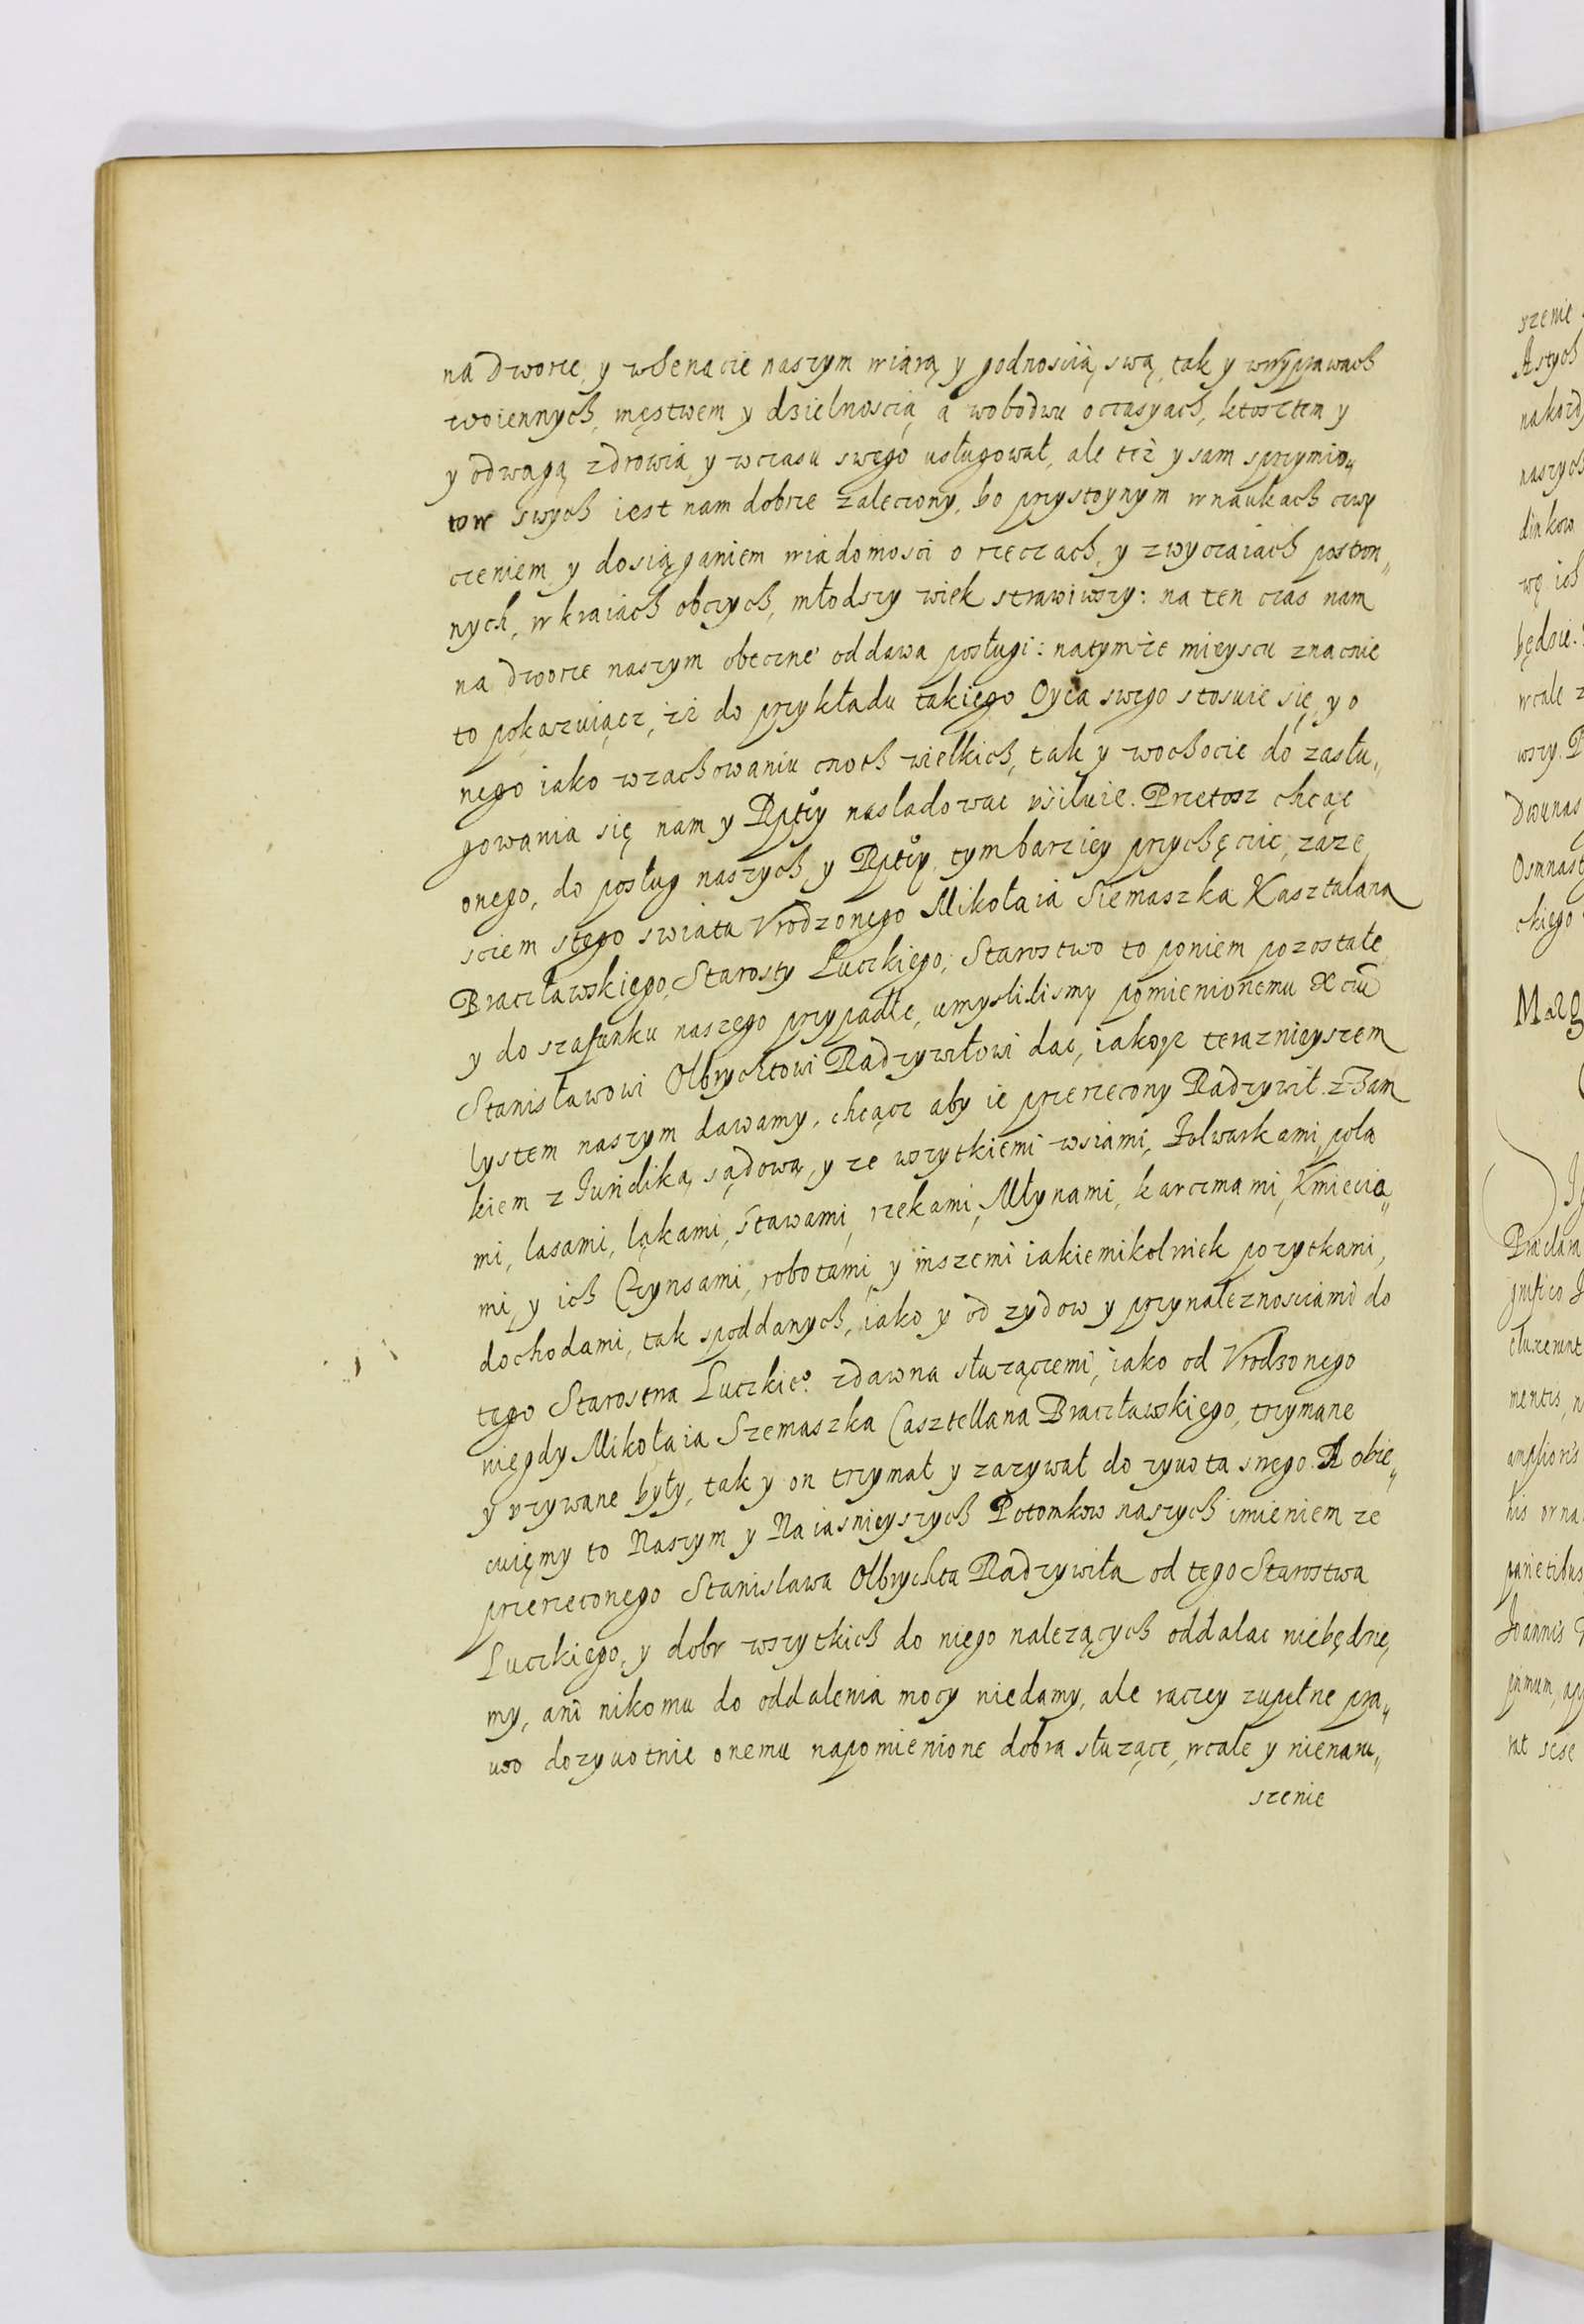 na dworze, y wSenacie naszym wiarą y godnością swą, tak y wwyprawach
woiennych, męstwem y dzielnoscią, a wobodwu oczasyach, kosztem y
y odwagą zdrowia, y wczasu swego usługował, ale też y sam sprzymio„
tow swych iest nam dobrze zalecony, bo przystoynym w naukach cwy
czeniem, y dosiąganiem wiadomosci o rzeczach, y zwyczaiach postron„
nych, w kraiach obczych, młodszy wiek strawiwszy: na ten czas nam
na dworze naszym obeczne oddawa posługi: natymże mieyscu znacnie
to pokazuiącz, iż do przykładu takiego Oyca swego stosuie się, y o
nego iako wzachowaniu cnoth wielkich, tak y wochocie do zasłu„
gowania się nam y Rptey nasladowac usiluie. Przetosz chcąc
onego, do posług naszych, y Rptey, tymbarziey przychęcic, zaze
sciem stego swiata Vrodzonego Mikołaia Siemaszka Kasztalana
Braczławskiego, Starosty Luczkiego, Starostwo to poniem pozostałe
y do szafunku naszego przypadłe, umyslilismy pomienionemu Xciu
Stanisławowi Olbrychtowi Radzywiłowi dac, iakosz teraznieyszem
lystem naszym dawamy, chcącz aby ie przerzeczony Radzywił z Zam
kiem z Juridiką sądową, y ze wszytkiemi wsiami, Folwarkami, pola
mi, lasami, ląkami, stawami, rzekami, Młynami, karczmami, Kmiecia„
mi, y ich Czynsami, robotami, y inszemi iakiemikolwiek pozytkami,
dochodami, tak spoddanych, iako y od zydow y przynaleznosciami do
tego Starostwa Luczkieo. zdawna słuzączemi, iako od Vrodzonego
niegdy Mikołaia Szemaszka Casztellana Braczławskiego, trzymane
y uzywane były, tak y on trzymał y zazywał do zywota swego. A obie„
cuięmy to Naszym y Naiasnieyszych Potomkow naszych imieniem ze
przerzeconego Stanislawa Olbrychta Radzywiła od tego Starostwa
Luczkiego, y dobr wszytkich do niego nalezących oddalac niebędzie„
my, ani nikomu do oddalenia mocy niedamy, ale raczey zupełne pra„
wo dozywotnie onemu napomienione dobra słuzące, wcale y nienaru„
szenie
szenie
Astych
nakozdy
naszych
dinkow
wę ich
będzie.
wcale z
wszy. P
Dwunas
Osmnast
ckiego
Marg
Praeclara
gnifico
mentis, n
amplioris
his orna
parietibus
Joannis
primum, ap
rat sese